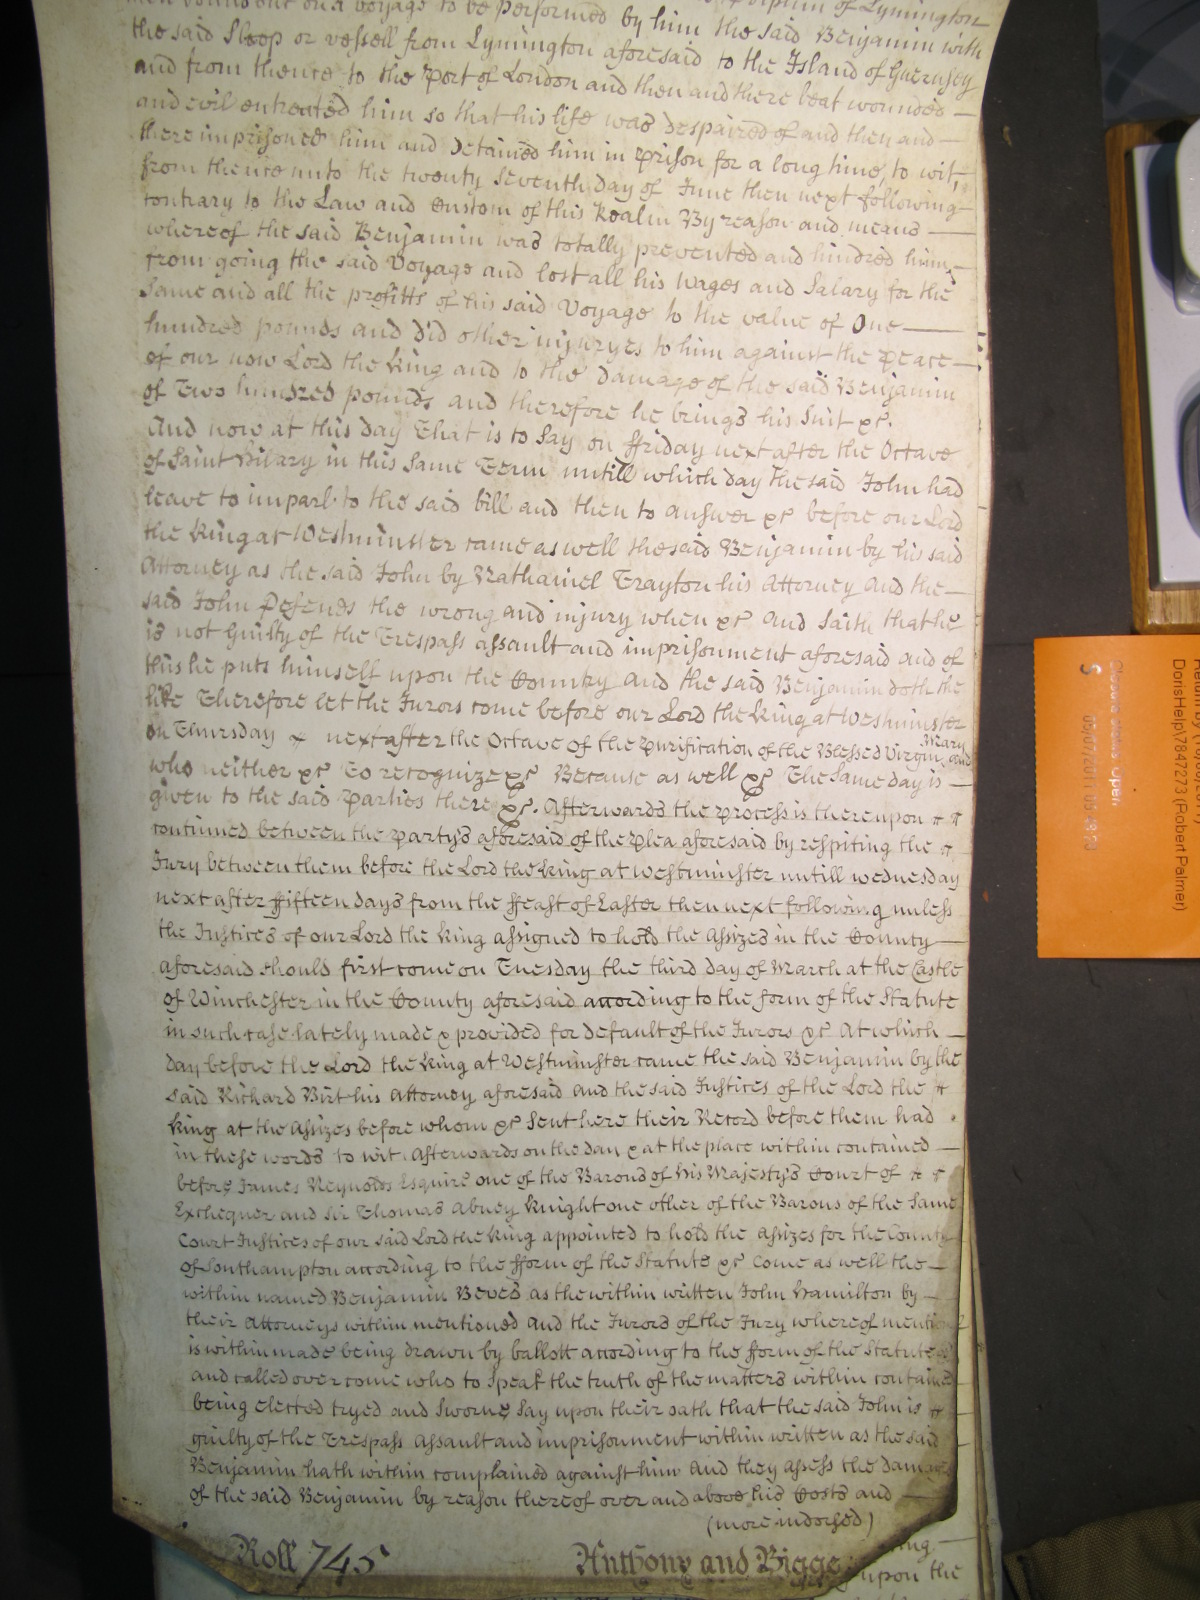 men bound out on a voyage to be performed by him the said Benjamin with
of Lymington
the said Sloop or vessell from Lymington aforesaid to the Island of Guernsey
and from thence to the Port of London and then and there beat wounded
and evil entreated him so that his life was despaired of and then and
there imprisoned him and detained him in prison for a long time, to wit,
from thence unto the twenty seventh day of June then next following
contrary to the Law and Custom of this Realm By reason and means
whereof the said Benjamin was totally prevented and hindred him
from going the said Voyage and lost all his Wages and Salary for the
same and all the profitts of his said Voyage to the value of One
hundred pounds and did other injuryes to him against the peace
of our now Lord the King and to the damage of the said Benjamin
of Two hundred pounds and therefore he brings his Suit &c.
And now at this day That is to Say on ffriday next after the Octave
of Saint Hilary in this same Term untill which day the said John had
leave to imparl to the said bill and then to answer &c before our Lord
the King at Westminster came as well the said Benjamin by his said
Attorney as the said John by Nathaniel Trayton his Attorney and the
said John Defends the wrong and injury when &c And Saith that he
is not Guilty of the Trespass assault and imprisonment aforesaid and of
this he puts himself upon the Country and the said Benjamin doth the
like Therefore let the Jurors come before our Lord the King at Westminster
on Thursday next after the Octave of the Purification of the Blessed Virgin Mary and
who neither &c To recognize &c Because as well &c The same day is
given to the said Parties there &c. Afterwards the process is thereupon
continued between the partys aforesaid of the plea aforesaid by respiting the
Jury between them before the Lord the King at Westminster untill Wednesday
next after ffifteen days from the ffeast of Easter then next following unless
the Justices of our Lord the King assigned to hold the Assizes in the County
aforesaid should first come on Tuesday the third day of March at the Castle
of Winchester in the County aforesaid according to the form of the Statute
in such case lately made & provided for default of the Jurors &c At which
day before the Lord the King at Westminster came the said Benjamin by the
said Richard Birt his Attorney aforesaid and the said Justices of the Lord the
King at the Assizes before whom &c Sent here their Record before them had
in these words to wit. Afterwards on the day & at the place within contained
before James Reynolds Esquire one of the Barons of his Majesty's Court of
Exchequer and Sir Thomas Abney Knight one other of the Barons of the Same
Court Justices of our said Lord the King appointed to hold the Assizes for the County
of Southampton according to the fform of the Statute &c Come as well the
within named Benjamin Beves as the within written John Hamilton by
their Attorneys within mentioned And the Jurors of the Jury whereof mention
is within made being drawn by ballott according to the fform of the Statute
and called over come who to Speak the truth of the matters within contained
being elected tryed and Sworne Say upon their oath that the said John is
guilty of the Trespass Assault and imprisonment within written as the said
Benjamin hath within complained against him And they assess the damages
of the said Benjamin by reason thereof over and above his Costs and
(more indorsed)
Roll 745 Anthony and Bigge
upon the
DorisHelp\7847273 (Robert Palmer)